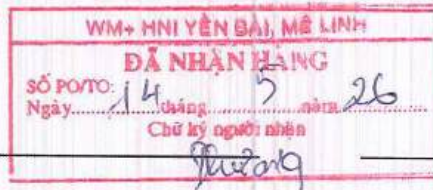 WM+ HNI YÊN BÀI, MÊ LINH
ĐÃ NHẬN HÀNG
SỐ PO/TO:
Ngày 14 tháng 5 năm 26
Chữ ký người nhận